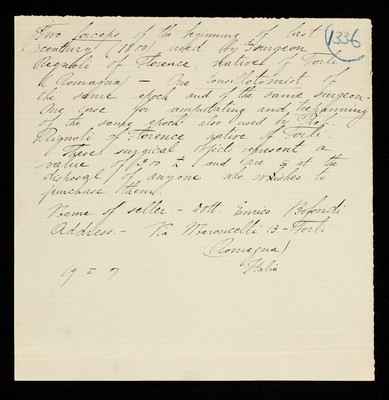 Two forceps of the beginning of last
century (1800) used by Surgeon
Regnoli of Florence, native of Forli
(Romagna) - One tonsillotomist of
the same epoch and of the same surgeon.
One case for amputating and trepanning
of the same epoch also used by Prof.
Regnoli of Florence native of Forli.
These surgical effects represent a
value of 300 £ and are at the
disposal of anyone who wishes to
purchase them.
Name of seller - dott. Enrico Bofondi
Address. - Via Maroncelli 13 - Forli
(Romagna)
Italia
1336